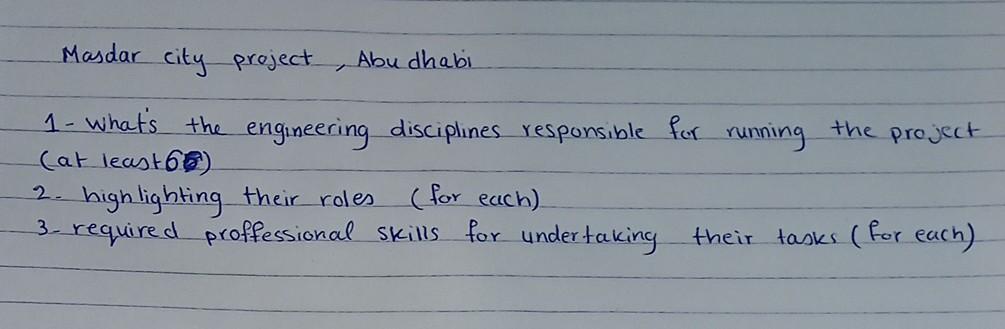 Masdar city project, Abu dhabi
1- what's the engineering disciplines responsible for running the project
(at least 6)
2- highlighting their roles (for each)
3- required proffessional skills for undertaking their tasks (for each)